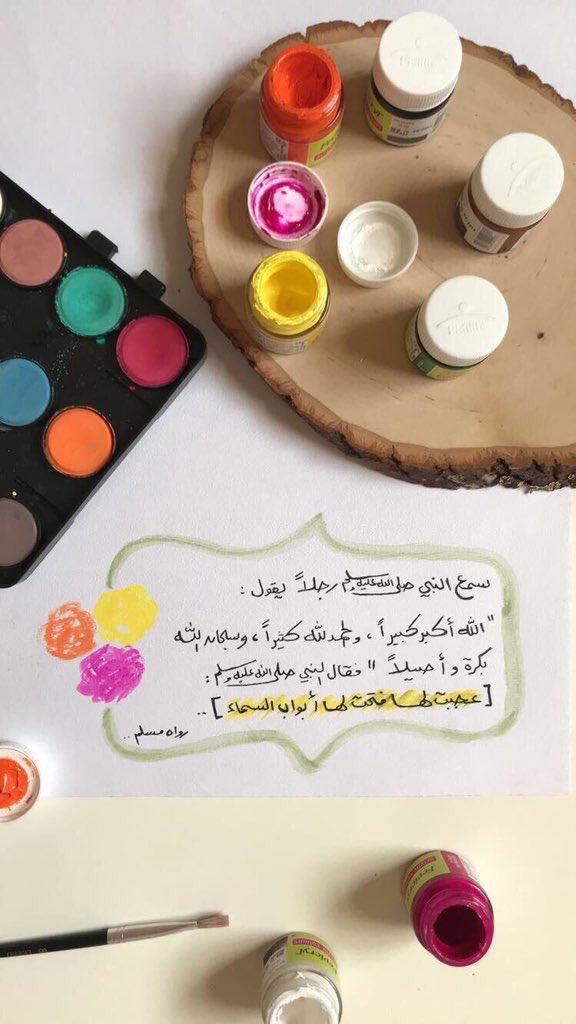 سمع النبي صلى الله عليه وسلم رجلاً يقول :
"الله أكبر كبيراً ، والحمدلله كثيراً ، وسبحان الله
بكرة وأصيلاً" فقال النبي صلى الله عليه وسلم :
[عجبت لها فتحت لها أبواب السماء] ..
رواه مسلم ..
Pidilite
Pidilite